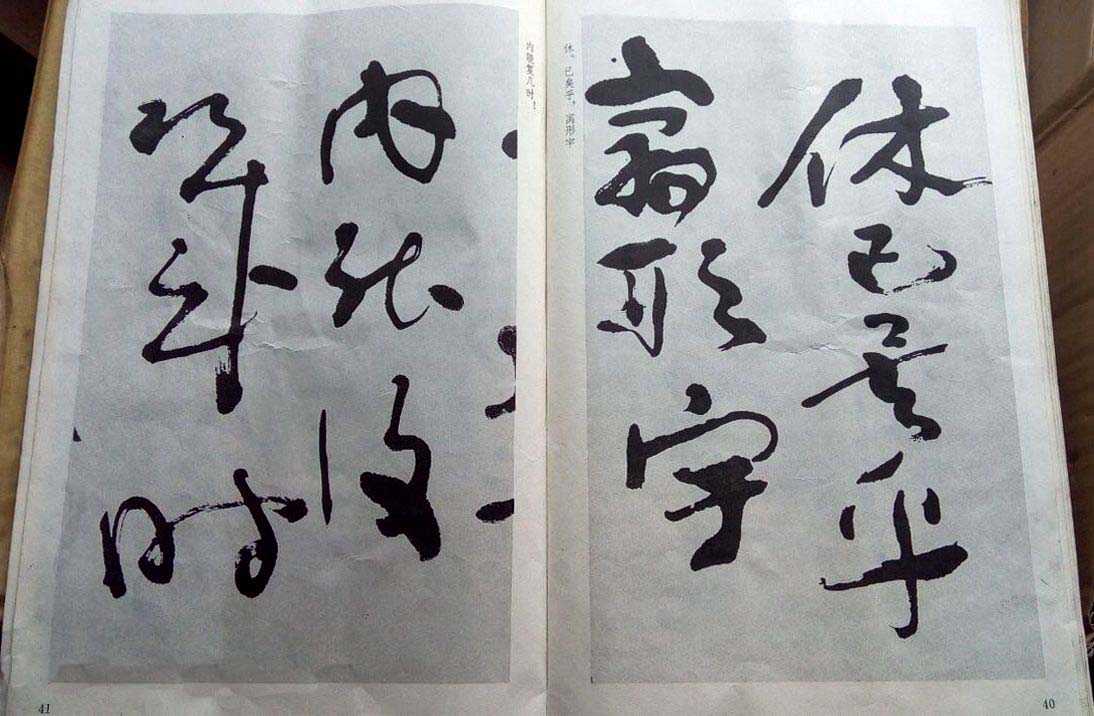 休已矣乎
寓形宇
休。已矣乎,寓形宇
40
内能復
幾時
内能复几时!
41